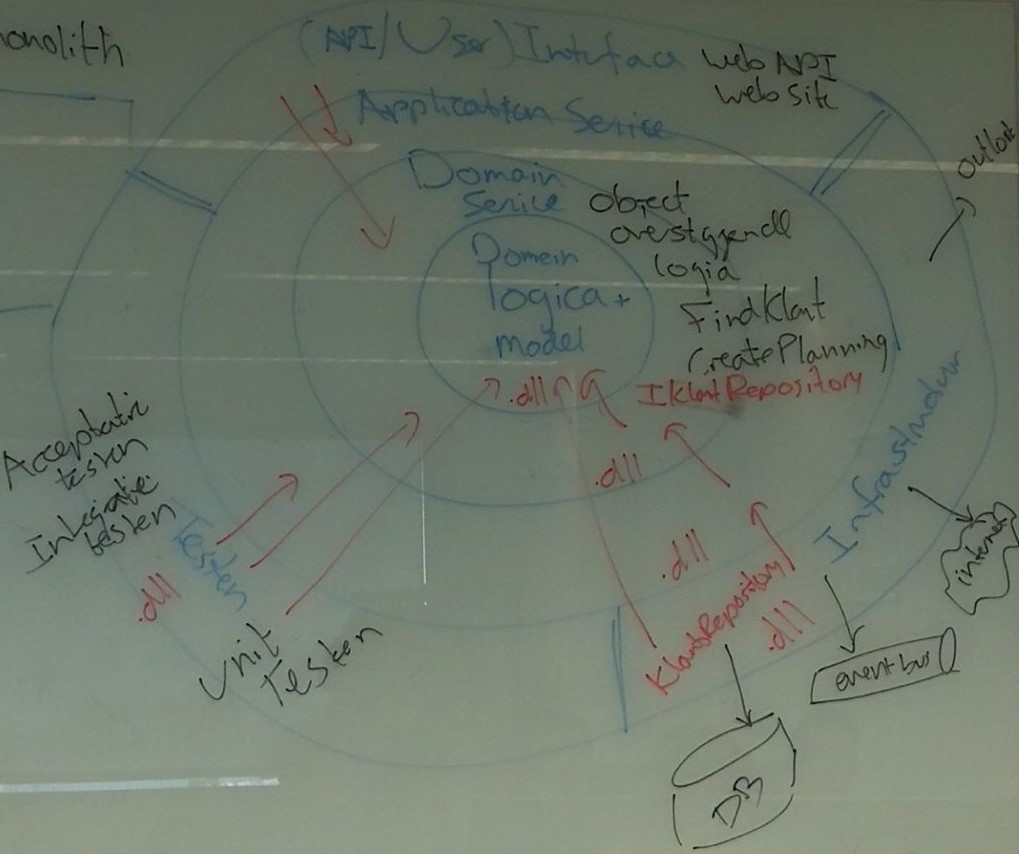 monolith
(API/User) Interface
web API
website
Application Service
Domain
Service
object
overstijgende
logica
FindKlant
CreatePlanning
Domein
logica +
model
.dll
IKlantRepository
.dll
.dll
KlantRepository
.dll
Infrastructuur
internet
eventbus
DB
Acceptatie
testen
Integratie
testen
Testen
.dll
Unit
Testen